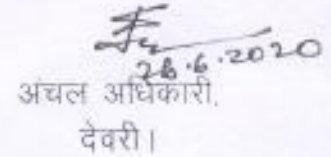 26.6.2020
अंचल अधिकारी,
देवरी।